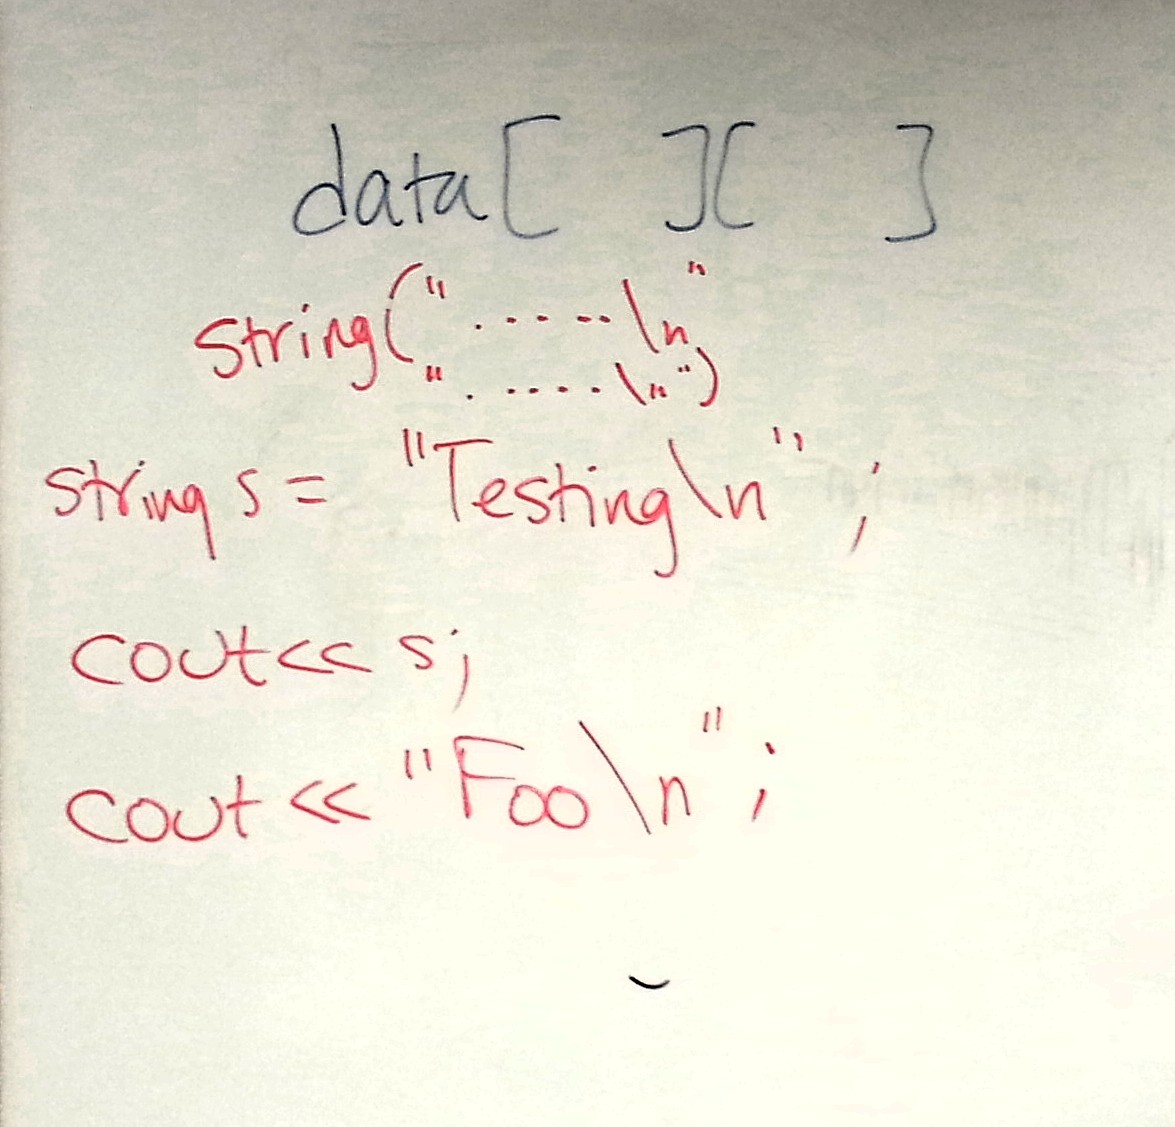 data[ ][ ]
string("......\n"
"......\n")
string s = "Testing\n";
cout<< s;
cout << "Foo\n";